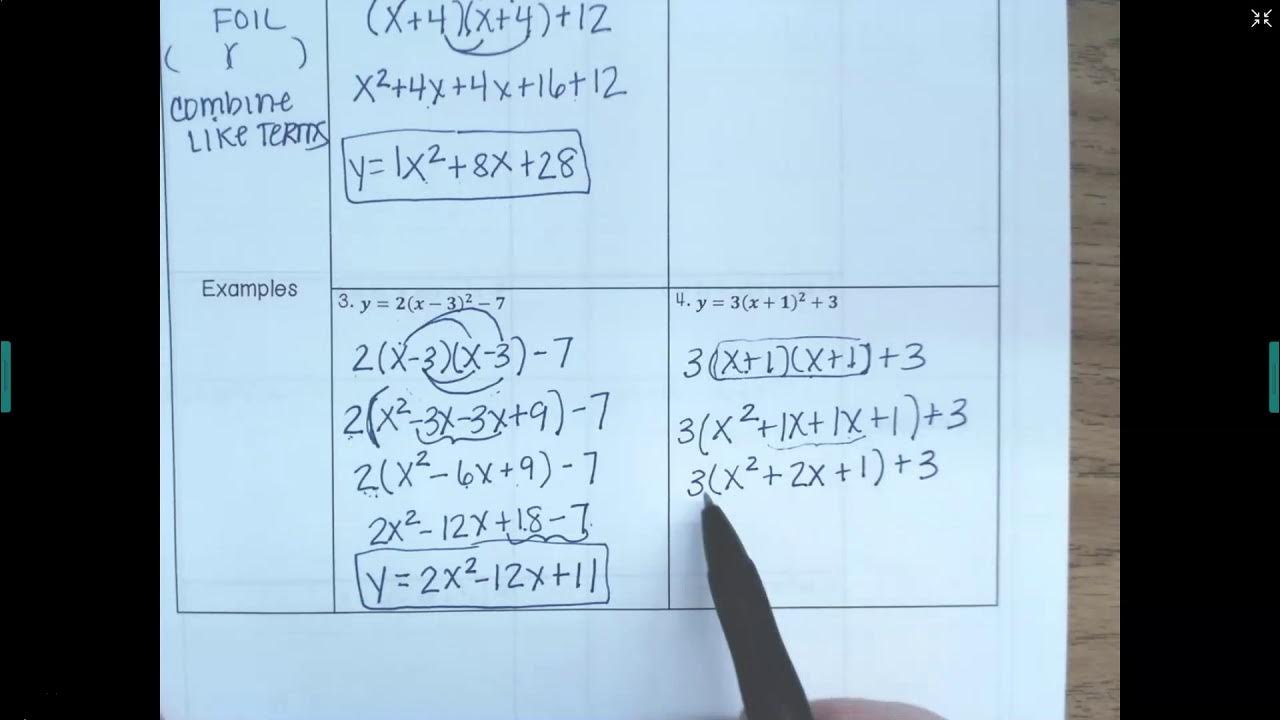 FOIL
( r )
COMBINE
LIKE TERMS
(x+4)(x+4)+12
x²+4x+4x+16+12
y=1x²+8x+28
Examples
3. y = 2(x − 3)² − 7
2(x-3)(x-3)-7
2(x²-3x-3x+9)-7
2(x²-6x+9)-7
2x²-12x+18-7
y=2x²-12x+11
4. y = 3(x + 1)² + 3
3(x+1)(x+1)+3
3(x²+1x+1x+1)+3
3(x²+2x+1)+3